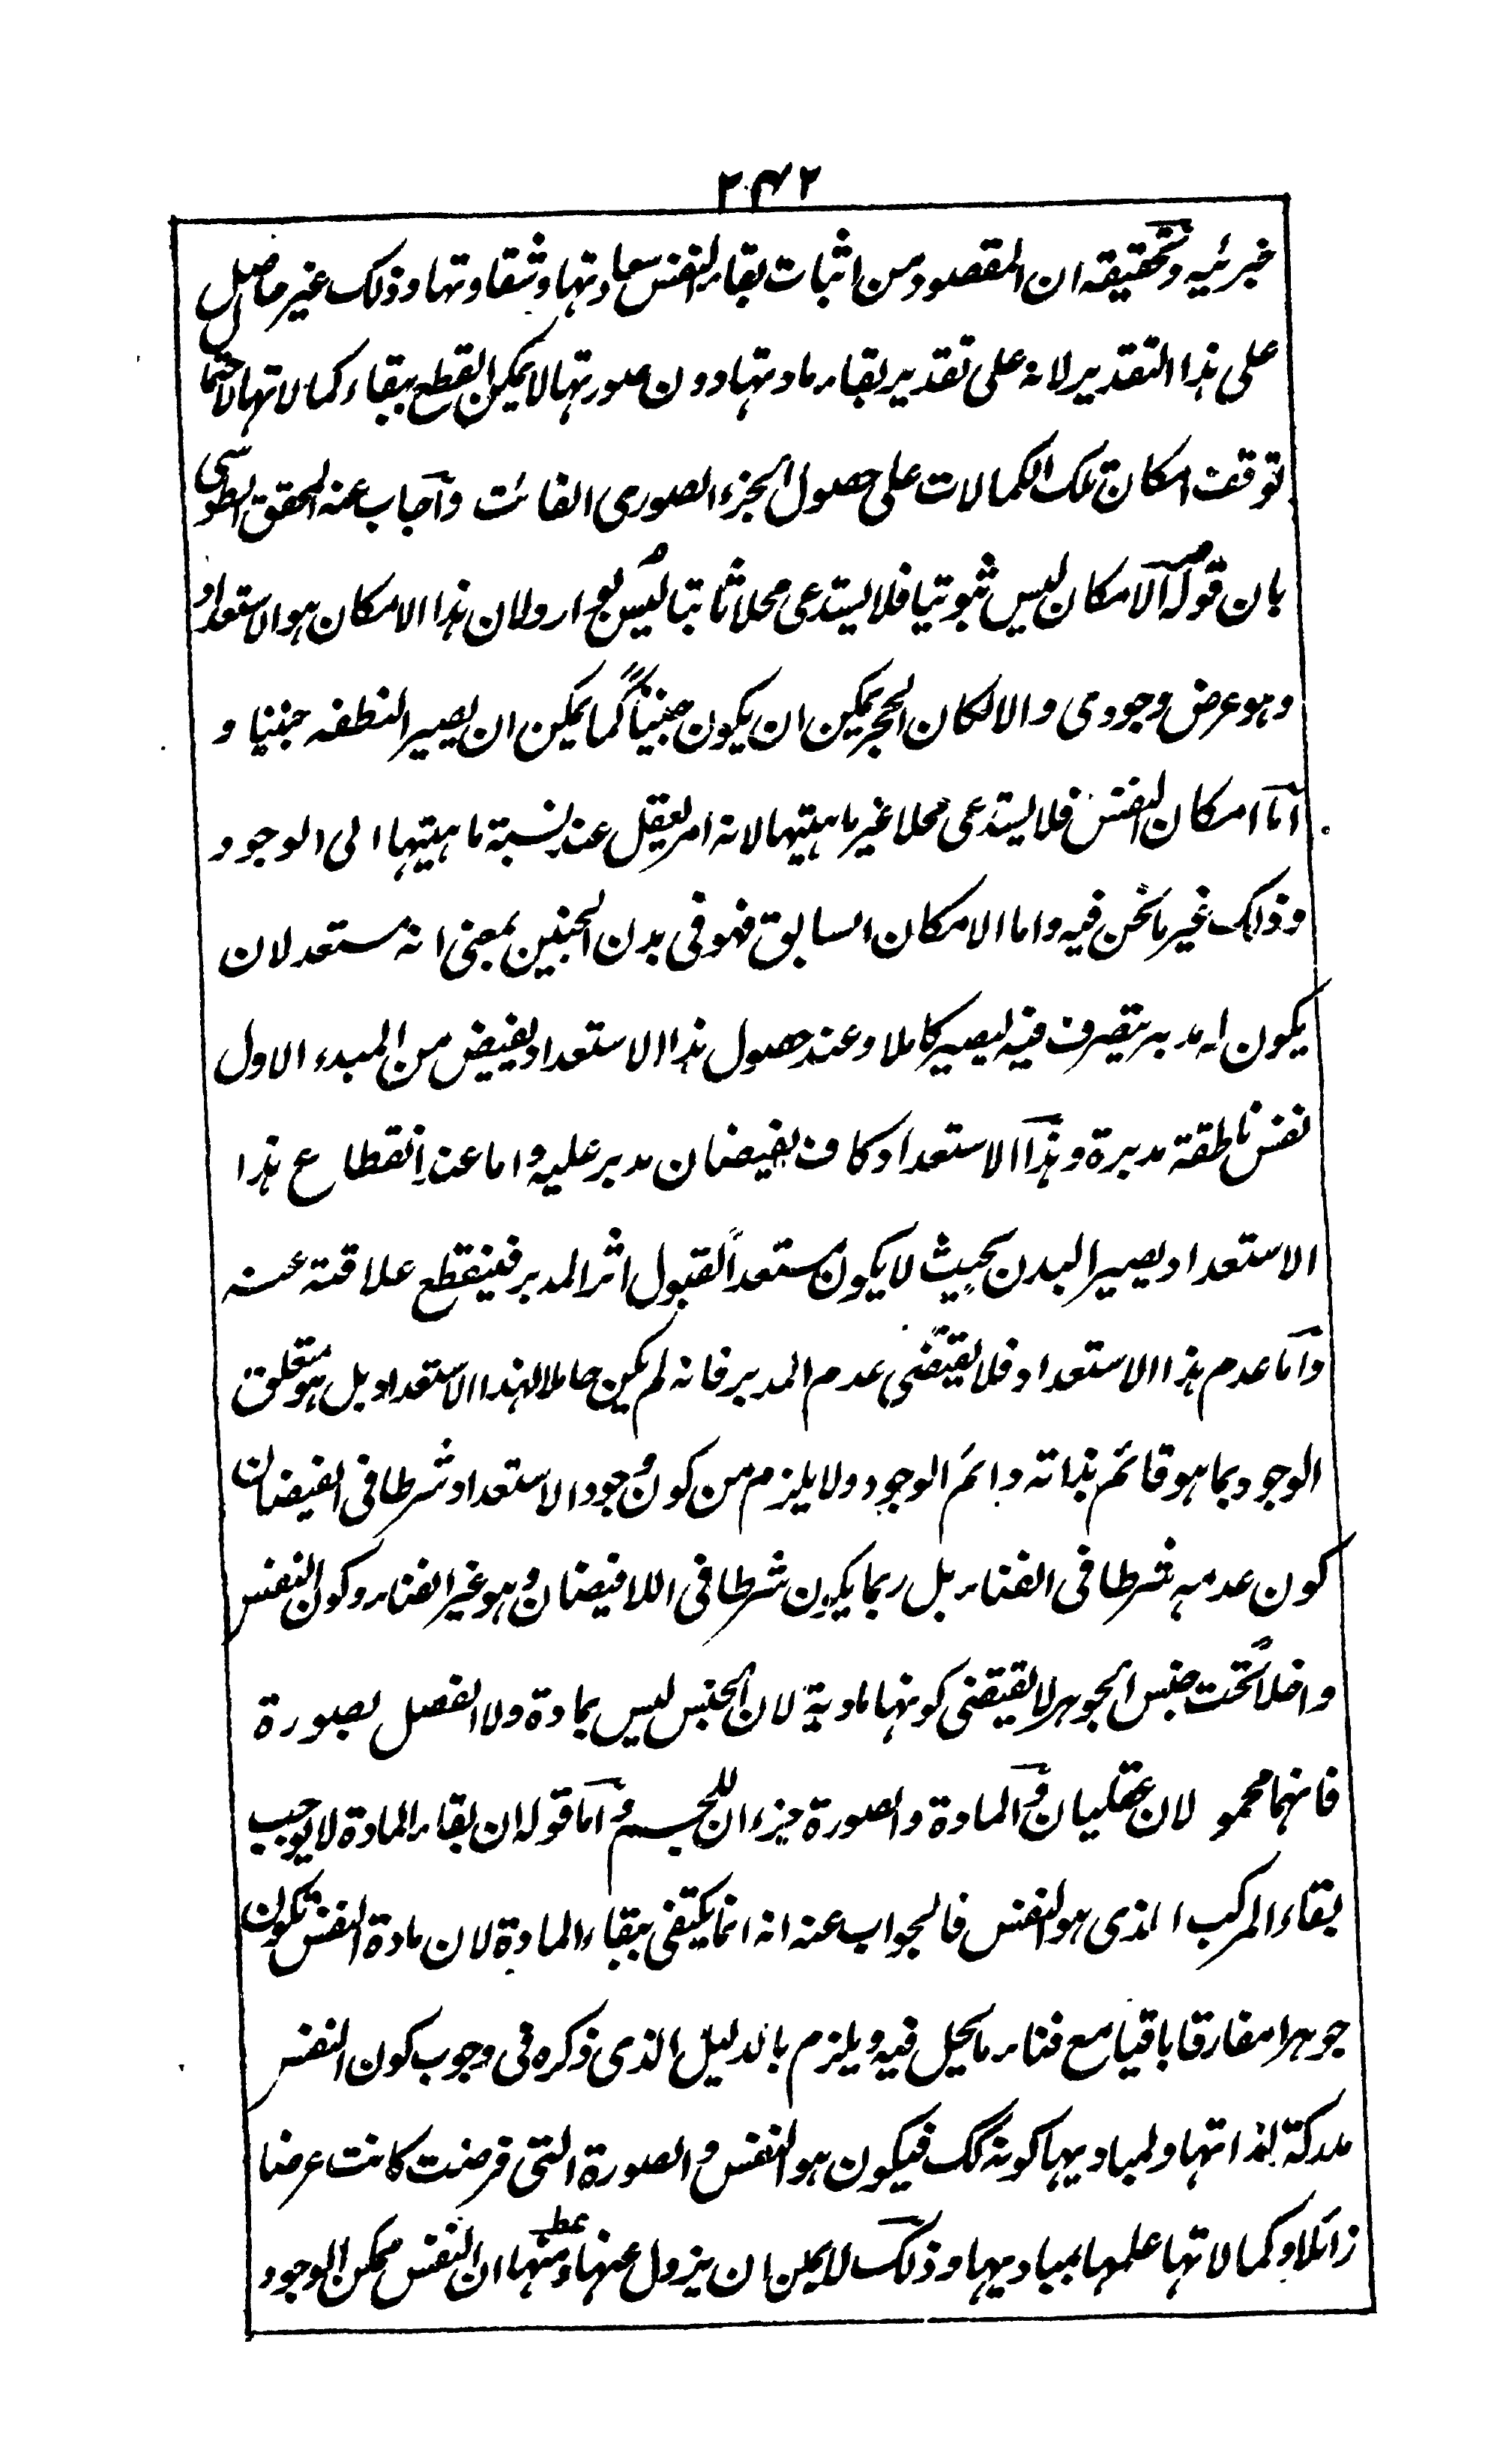 ۲۴۲
جزئيه وتحقيقه ان المقصود من اثبات بقاء النفس سعادتها وشقاوتها وذلك غير حاصل
على هذا التقدير لانه على تقدير بقاء مادتها دون صورتها لا يمكن القطع ببقاء كمالاتها لاحتمال
توقف امكان تلك الكمالات على حصول الجزء الصورى الفائت وآجاب عنه المحقق الطوسى
بان قوله الامكان ليس ثبوتيا فلا يستدعى محلا ثابتا ليس بوارد لان هذا الامكان هو الاستعداد
وهو عرض وجودى والا لكان الحجر يمكن ان يكون جنيناً كما يمكن ان يصير النطفه جنينا و
آما امكان النفس فلا يستدعى محلا غير ماهيتها لانه امر يعقل عند نسبة ماهيتها الى الوجود
وذلك غير ما نحن فيه واما الامكان السابق فهو فى بدن الجنين بمعنى انه مستعد لان
يكون له مدبر يتصرف فيه ليصير كاملا وعند حصول هذا الاستعداد يفيض من المبدء الاول
نفس ناطقة مدبرة وهذا الاستعداد كاف لفيضان مدبر عليه واما عند انقطاع هذا
الاستعداد يصير البدن بحيث لا يكون مستعداً لقبول اثر المدبر فينقطع علاقته عنه
وآما عدم هذا الاستعداد فلا يقتضى عدم المدبر فانه لم يكن حاملا لهذا الاستعداد بل هو متعلق
الوجود بما هو قائم بذاته دائم الوجود ولا يلزم من كون وجود الاستعداد شرطا فى الفيضان
كون عدمه شرطا فى الفناء بل ربما يكون شرطا فى اللافيضان وهو غير الفناء وكون النفس
داخلاً تحت جنس الجوهر لا يقتضى كونها مادية لان الجنس ليس بمادة ولا الفصل بصورة
فانهما محمولان عقليان والمادة والصورة جزءان للجسم وآما قوله ان بقاء المادة لا يوجب
بقاء المركب الذى هو النفس فالجواب عنه انه انما يكتفى ببقاء المادة لان مادة النفس تكون
جوهرا مفارقا باقيا مع فناء ما يحل فيه ويلزم بالدليل الذى ذكره فى وجوب كون النفس
مدركة لذاتها ولمباديها كونه كك فيكون هو النفس والصورة التى فرضت كانت عرضا
زائلا وكمالاتها علمها بمباديها وذلك لا يمكن ان يزول عنها ومنها ان النفس ممكن الوجود